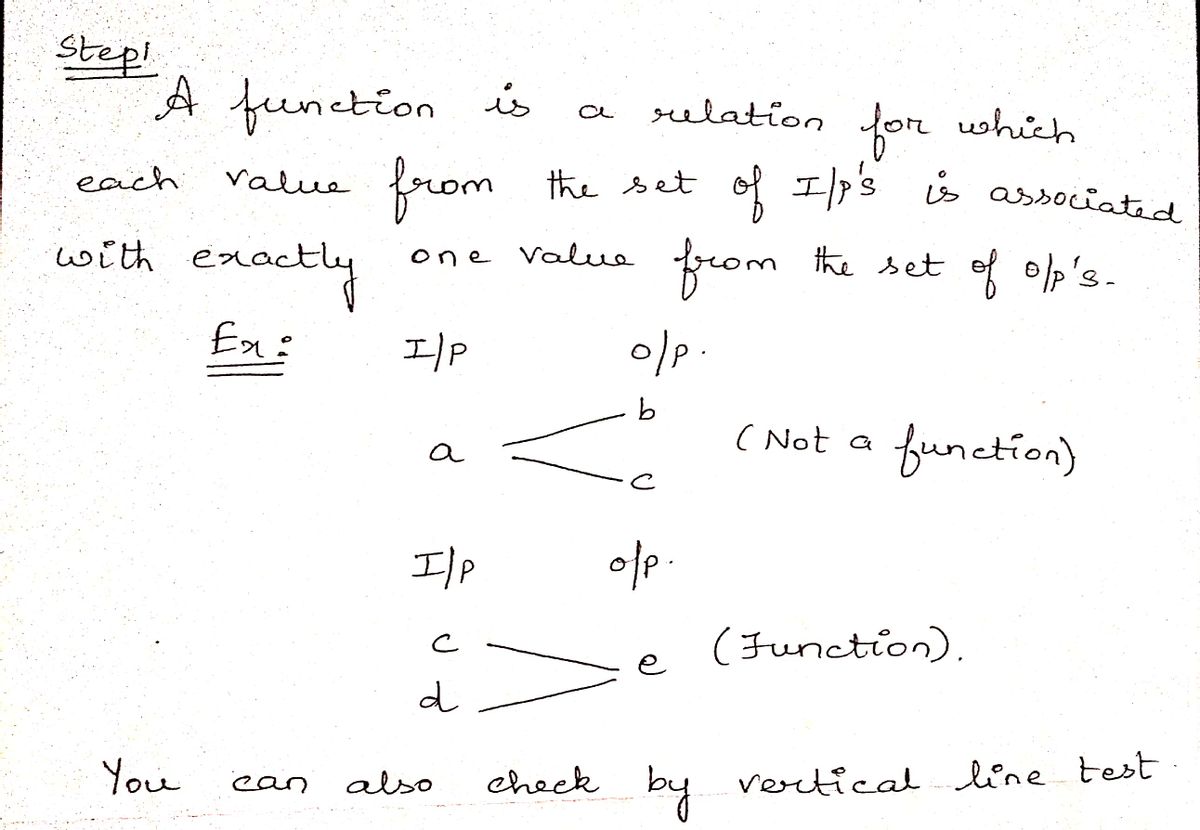 Step1
A function is a relation for which
each value from the set of I/p's is associated
with exactly one value from the set of o/p's.
Ex:
I/P o/p.
b
a (Not a function)
c
I/P o/p.
c
e (Function).
d
You can also check by vertical line test